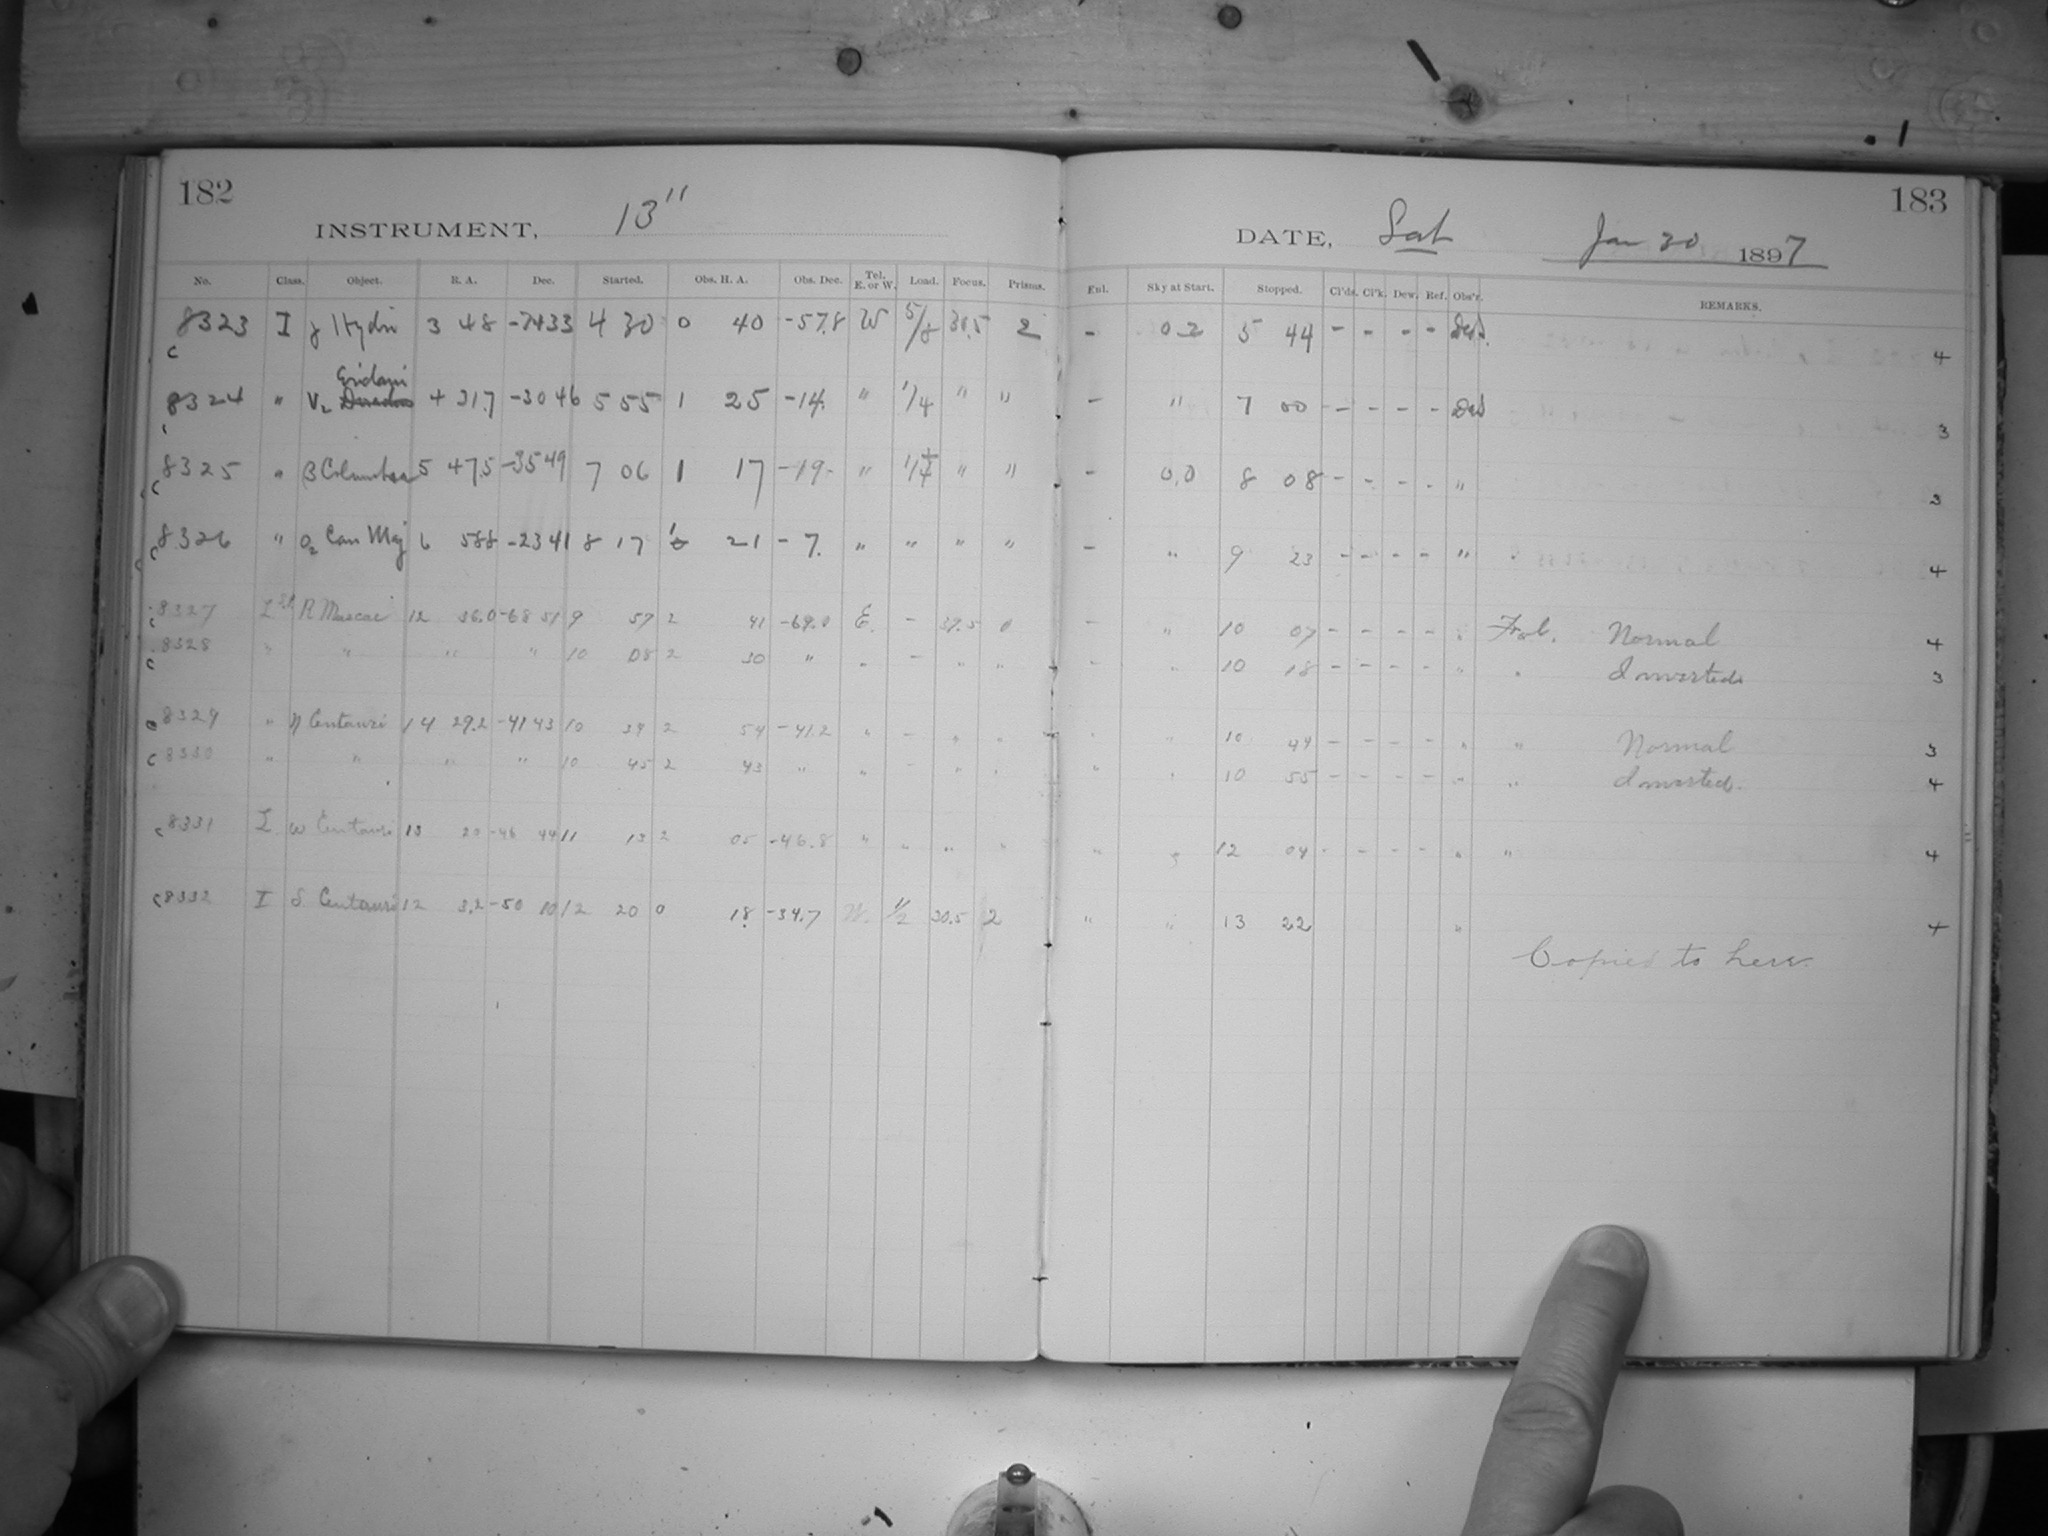 182
INSTRUMENT, 13"
No. Class. Object. R. A. Dec. Started. Obs. H. A. Obs. Dec. Tel. E. or W. Load. Focus. Prisms.
8323 I γ Hydri 3 48 -7433 4 30 0 40 -57.8 W 5/8 30.5 2
Eridani
8324 " V2 4 31.7 -3046 5 55 1 25 -14. " 1/4 " "
8325 " β Columbae 5 47.5 -3549 7 06 1 17 -19- " 1/4 " "
8326 " O2 Can Maj 6 588 -2341 8 17 1 21 -7. " " " "
8327 R Muscae 12 36.0 -68 51 9 57 2 41 -69.0 E. - 37.5 0
8328 " " " " 10 08 2 30 " " - " "
8329 " η Centauri 14 29.2 -41 43 10 34 2 54 -41.2 " - " "
8330 " " " " 10 45 2 43 " " - " "
8331 I. ω Centauri 13 20 -46 44 11 13 2 05 -46.8 " " " "
8332 I δ Centauri 12 3.2 -50 10 12 20 0 18 -34.7 W. 1/2 30.5 2
183
DATE, Sat Jan 30 1897
Enl. Sky at Start. Stopped. Cl'ds. Cl'k. Dew. Ref. Obs'r. REMARKS.
- 0 2 5 44 - - - - 4
- " 7 00 - - - - 3
- 0.0 8 08 - - - - " 3
- " 9 23 - - - - " 4
- " 10 07 - - - - " Normal 4
- " 10 18 - - - - " " Inverted 3
" " 10 44 - - - - " " Normal 3
" " 10 55 - - - - " " Inverted. 4
" 12 04 - - - - " " 4
" " 13 22 " 4
Copied to here.